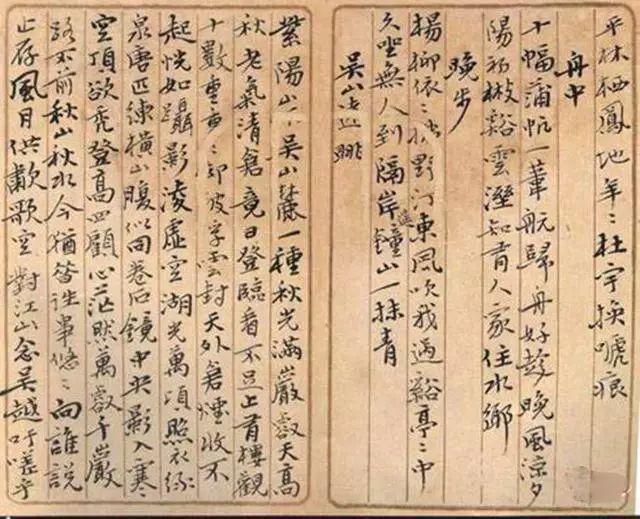 平林栖鳳地年〻杜宇換嗁痕
舟中
十幅蒲帆一葦航歸舟好趁晚風涼夕
陽初掛谿雲溼知有人家住水鄉
晚步
楊柳依〻拂野汀東風吹我過谿亭〻中
久坐無人到隔岸鐘山一抹青
吳山遠眺
紫陽山 吳山麓一種秋光滿巖壑天高
秋老氣清蒼竟日登臨看不足上有樓觀
十數重 字雲封天外蒼煙收不
起恍如躡影凌虛空湖光萬頃照衣綠
泉唐匹練橫山腹 回卷石鏡中央影入寒
空頂欲禿登高四顧心茫然萬壑千巖
路不前秋山秋水今猶昔往事悠〻向誰說
止存風月供歗歌空對江山念吳越吁嗟乎